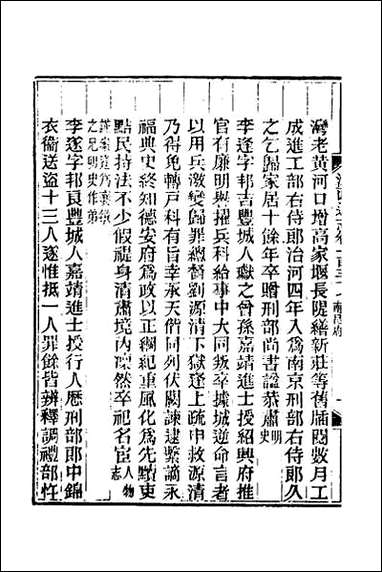 灣老黃河口增高家堰長隄繕新莊等舊牐閱數月工
成進工部右侍郎治河四年入為南京刑部右侍郎久
之乞歸家居十餘年卒贈刑部尚書諡恭肅明史
李逢字邦吉豐城人嶽之曾孫嘉靖進士授紹興府推
官有廉明與擢兵科給事中大同叛卒據城逆命言者
以用兵激變歸罪總督劉源清下獄逢上疏申救源清
乃得免轉戶科有旨幸承天偕同列伏闕諫逮繫謫永
福典史終知德安府為政以正綱紀重風化為先黜吏
點民持法不少假禔身清肅境內凜然卒祀名宦人物志
之兄明史作弟
李遂字邦良豐城人嘉靖進士授行人歷刑部郎中錦
衣衛送盜十三人遂惟抵一人罪餘皆辨釋調禮部忤